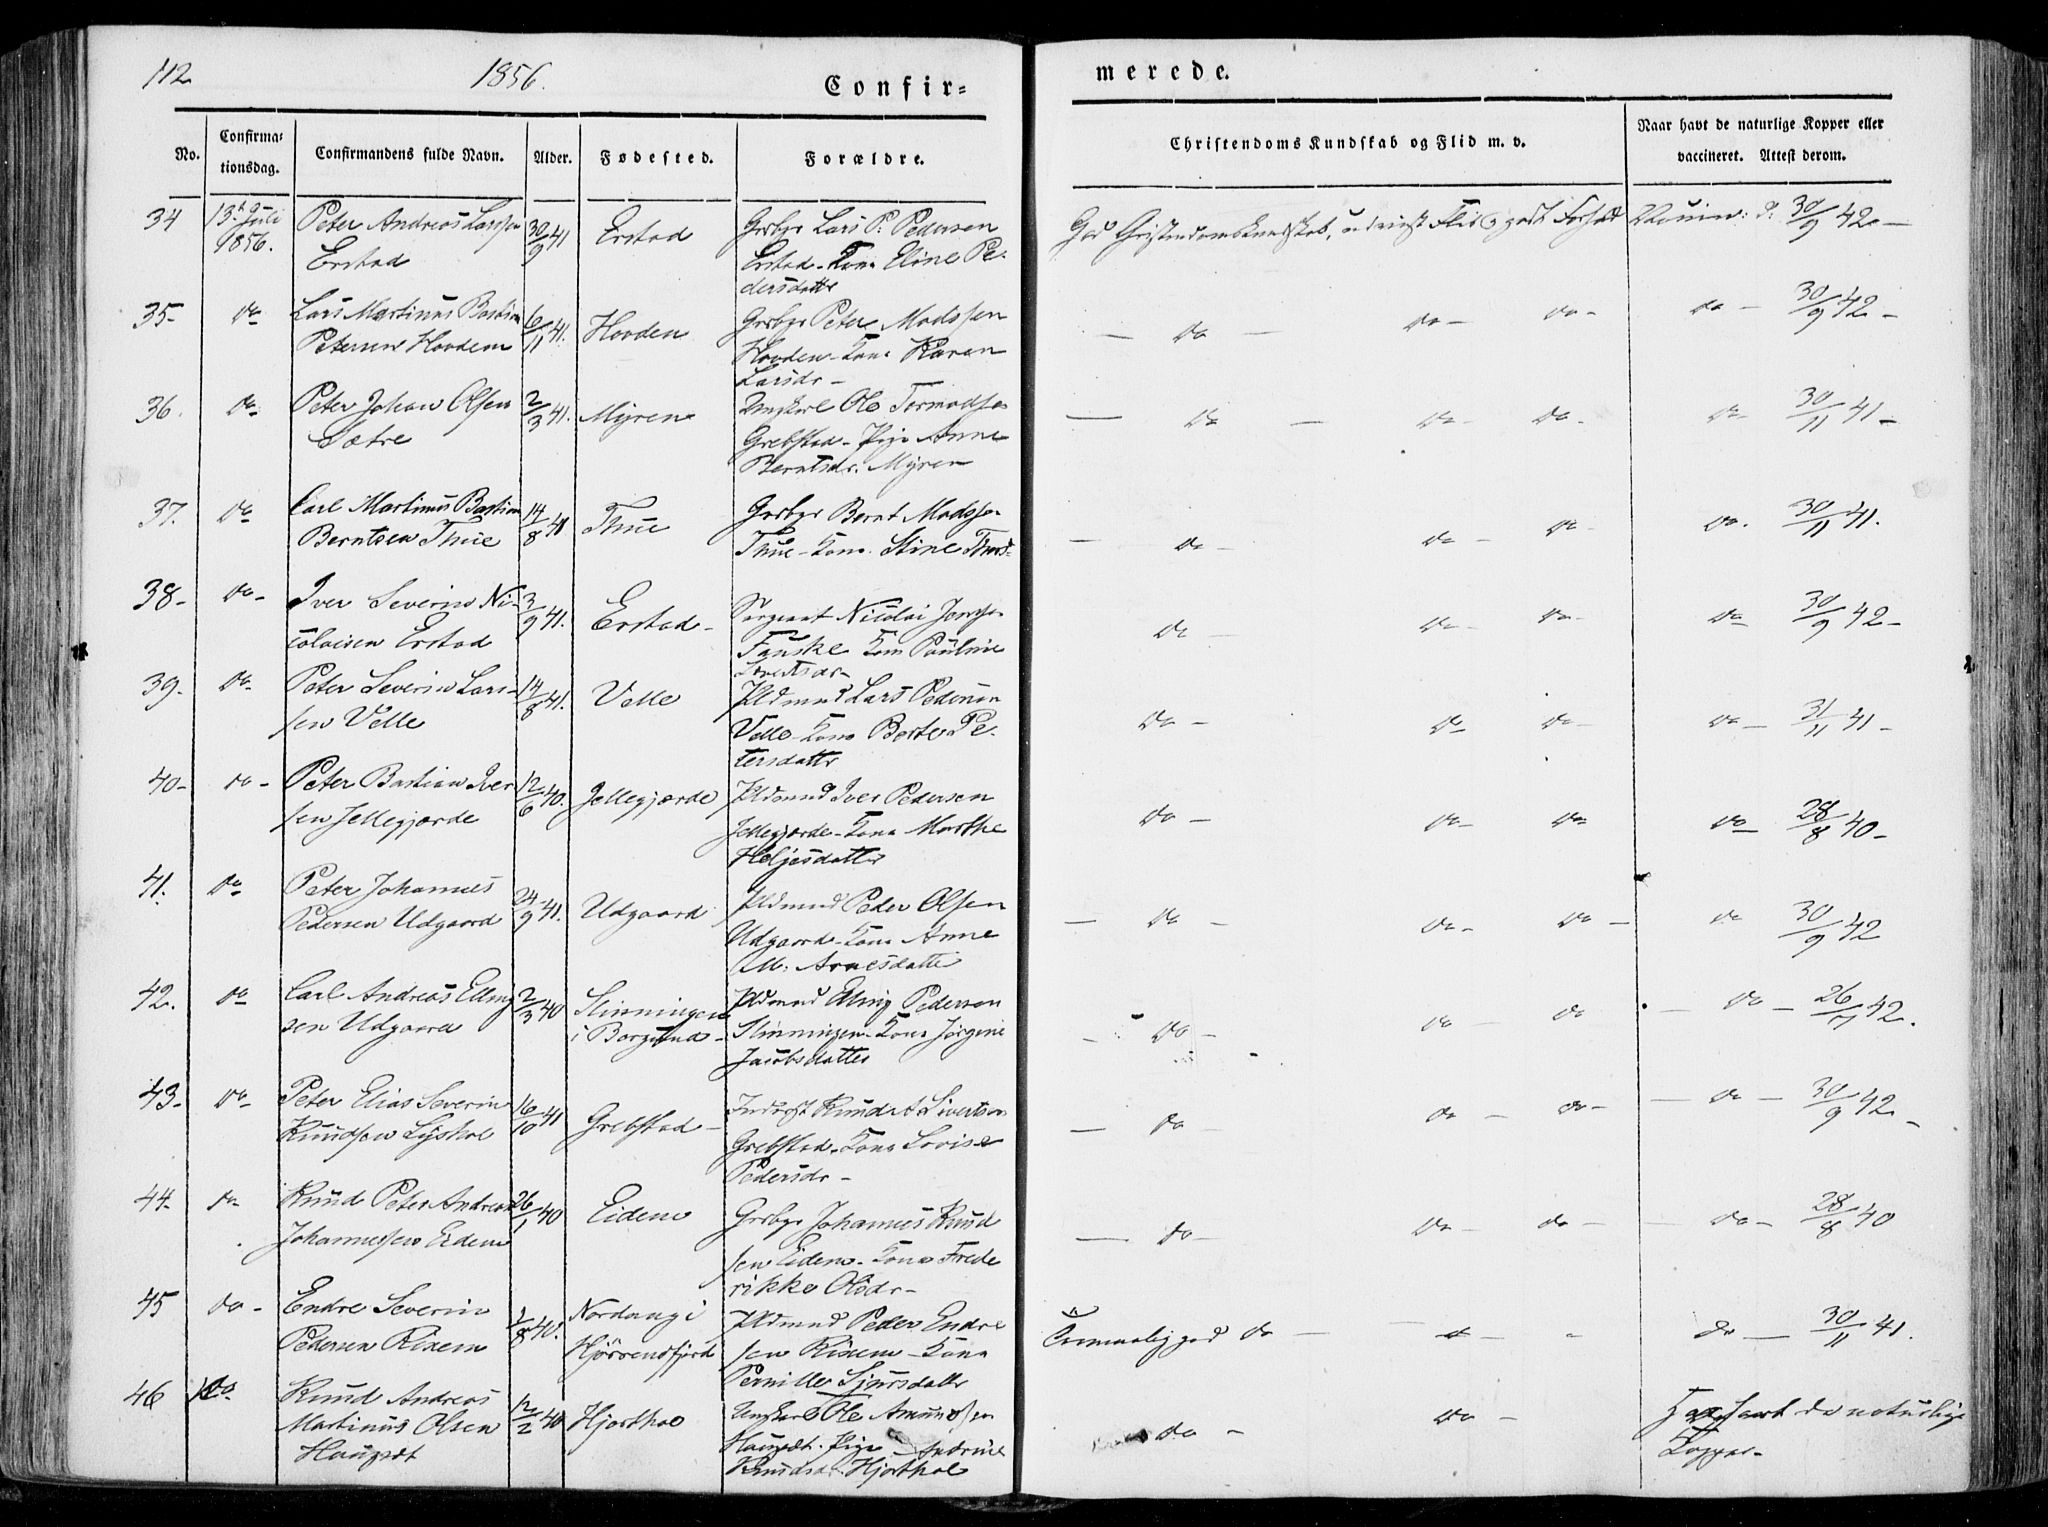 112
1856.
Confir=
merede.
No.
Confirma=
tionsdag.
Confirmandens fulde Navn.
Alder.
Fødested.
Forældre.
Christendoms Kundskab og Flid m. v.
Naar havt de naturlige Kopper eller
vaccineret. Attest derom.
34 13de Juli Peter Andreas Larssen 30/9 41 Erstad Grbgr Lars P. Pedersen God Christendomskundskab, udviist Flid og godt Forhold Vaccin: d. 30/9 42 —
1856. Erstad Erstad - Kone Eline Pe-
dersdatter
35- do Lars Martinus Bastian 6/11 41. Hovden Grbgr Peter Madssen — do — do - do - do - 30/9 42 -
Petersen Hovden Hovden - Kone Karen
Larsdr -
36. do Peter Johan Olsen 2/3 41. Myren Ungkarl Ole Tormodsen — do — do - do - do - 30/11 41 -
Sætre Grebstad - Pige Anne
Berntsdr. Myren
37. do Carl Martinus Bastian 14/8 41 Thue Grbgr Bernt Madssen - do - do - do - do. 30/11 41.
Berntsen Thue Thue - Kone Stine
38- do- Iver Severin Ni- 3/9 41. Erstad - Sergeant Nicolai Jonsen do - do - do - do 30/9 42 -
colaisen Erstad Fauske Kone Pauline
Sivertsdr -
39- do- Peter Severin Lars- 14/8 41. Velle Pldmand Lars Pedersen do - do do - do - 31/11 41 -
sen Velle Velle - Kone Berte Pe-
tersdatter
40- do - Peter Bastian Iver 12/6 40. Jellegjærde Pldmand Iver Pedersen do - do - do do - 28/8 40 -
sen Jellegjærde Jellegjærde - Kone Marthe
Heljesdatter
41. do Peter Johannes 24/9 41. Udgaard Pldmand Peder Olsen — do - do - do - do 30/9 42
Pedersen Udgaard Udgaard - Kone Anne
M. Arnesdatter
42. do Carl Andreas Elling 2/3 40 Slinningen Pldmand Elling Pedersen - do - do - do - do - 26/11 42.
sen Udgaard i Borgund - Slinningen - Kone Jørgine
Jacobsdatter
43- do- Peter Elias Severin 16/10 41 Grebstad - Inderst Knud A Sivertsen — do - do - do - - do - 30/9 42 -
Knudsen Lyshol Grebstad - Kone Lovise
Pedersdr -
44- do- Knud Peter Andreas 26/1 40 Eidem Grbgr Johannes Knud — do - do - do - do - 28/8 40
Johannessen Eidem sen Eidem - Kone Frede
rikke Olsdr -
45 do - Endre Severin 1/8 40. Nordang i Pldmand Peder Endre Temmelig god do — do - - do — 30/11 41.
Pedersen Rixem Hjørrendfjord sen Rixem - Kone
Pernille Sjursdatter
46 do Knud Andreas 12/2 40 Hjorthol Ungkarl Ole Amundsen do - do - Har havt de naturlige
Martinus Olsen Haugsdt. Pige Andrine Kopper -
Haugsdt Knudsdr. Hjorthol